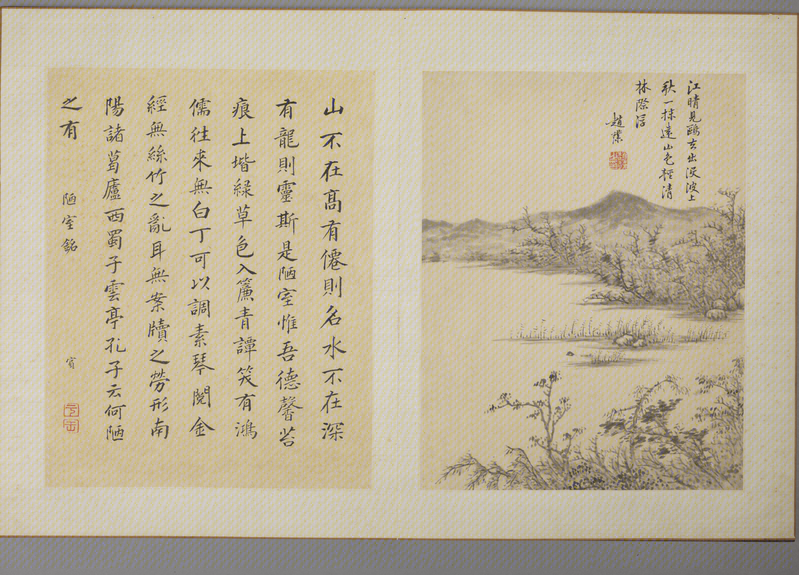 江晴見鷗去出没波上
秋一抹遠山色輕清
林際浮
趙棻
山不在髙有僊則名水不在深
有龍則靈斯是陋室惟吾德馨苔
痕上堦緑草色入簾青譚笑有鴻
儒往來無白丁可以調素琴閱金
經無絲竹之亂耳無案牘之勞形南
陽諸葛廬西蜀子雲亭孔子云何陋
之有 陋室銘